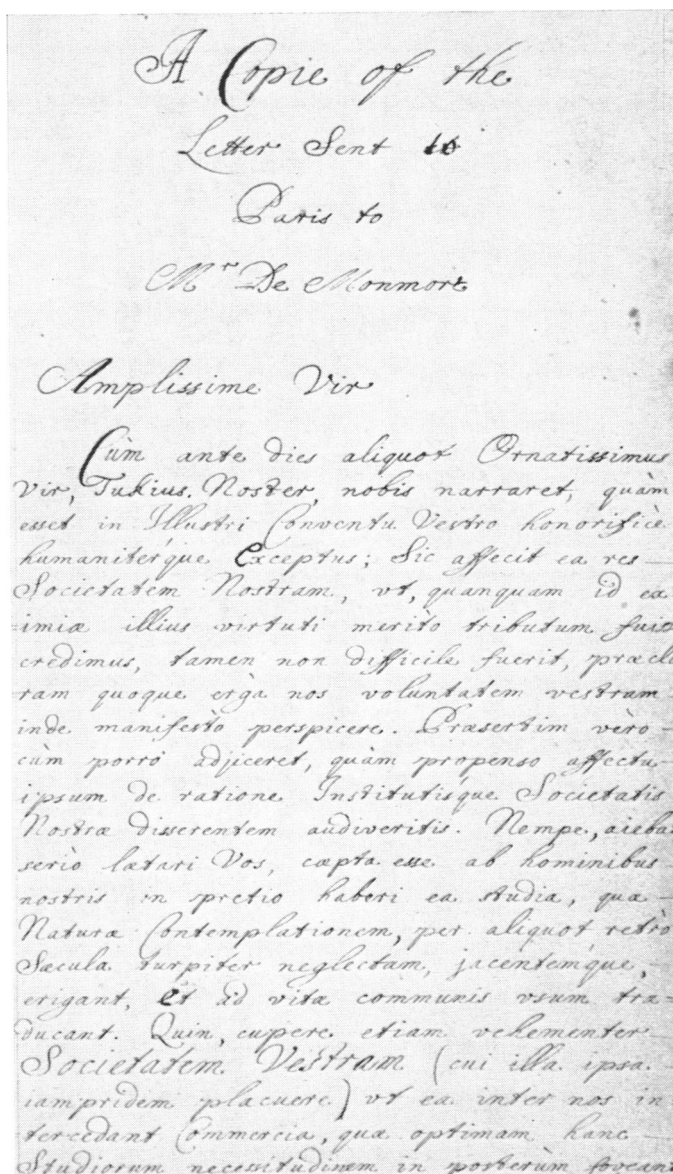 A Copie of the
Letter Sent to
Paris to
Mr De Monmort
Amplissime Vir
Cùm ante dies aliquot Ornatissimus
Vir, Tukius Noster, nobis narraret, quàm
esset in Illustri Conventu Vestro honorificè
humaniterque Exceptus; Sic affecit ea res
Societatem Nostram, vt, quanquam id ex
=imiæ illius virtuti meritò tributum fuisse
credimus, tamen non difficile fuerit, præcla
ram quoque ergà nos voluntatem vestram
inde manifestò perspicere. Præsertim vèro
cùm porrò adjiceret, quàm propenso affectu
ipsum de ratione Institutisque Societatis
Nostræ disserentem audiveritis. Nempe, aieba
seriò lætari Vos, cæpta esse ab hominibus
nostris in pretio haberi ea studia, quæ
Naturæ Contemplationem, per aliquot retrò
Sæcula turpiter neglectam, jacentemque,
erigant, et ad vitæ communis vsum tra=
ducant. Quin, cupere etiam vehementer
Societatem Vestram (cui illa ipsa
iampridem placuere) vt ea inter nos in
tercedant Commercia, quæ optimam hanc
Studiorum necessitudinem in posterùm